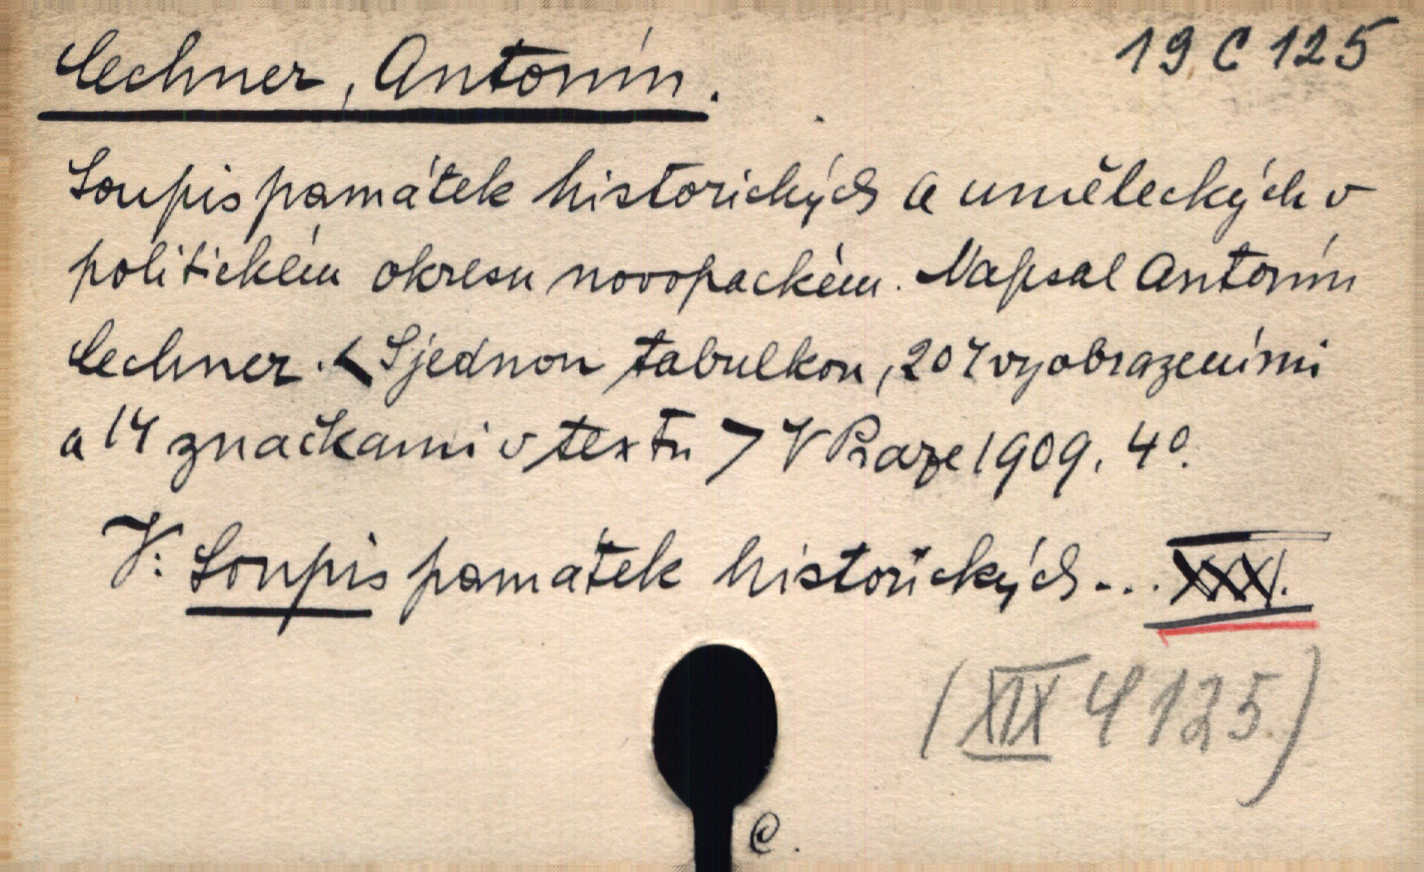 Cechner, Antonín.
19 C 125
Soupis památek historických a uměleckých v
politickém okresu novopackém. Napsal Antonín
Cechner. < S jednou tabulkou, 207 vyobrazeními
a 14 značkami v textu > V Praze 1909. 4°.
V: Soupis památek historických... XXXI.
(XIX 4 125.)
C.